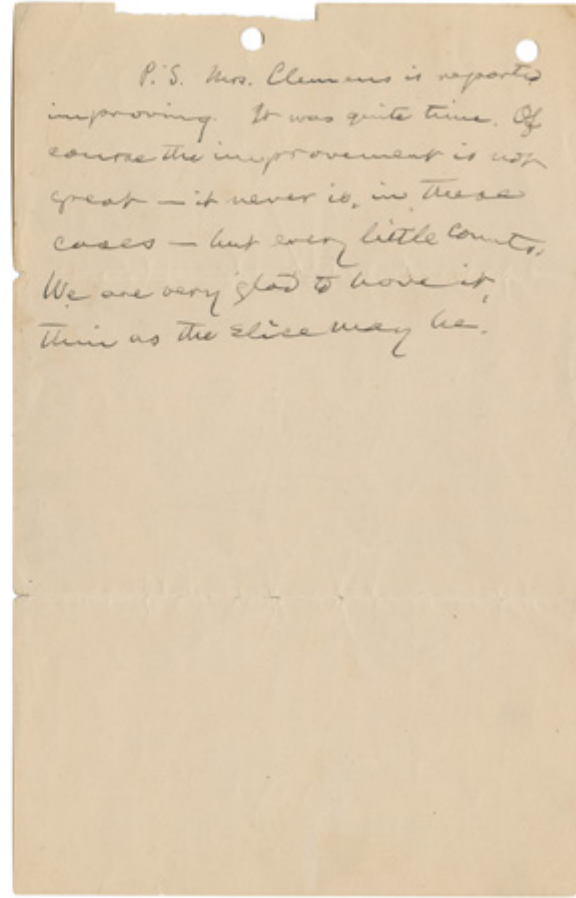 P.S. Mrs. Clemens is reported
improving. It was quite time. Of
course the improvement is not
great — it never is, in these
cases — but every little counts.
We are very glad to have it,
thin as the slice may be.